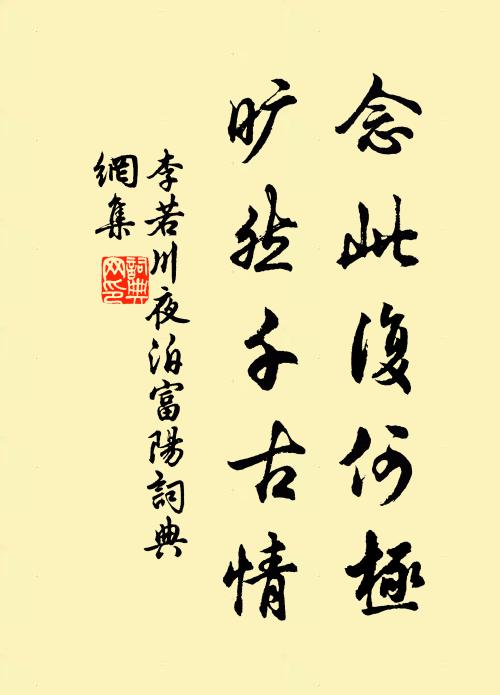 念此復何極
曠然千古情
李若川夜泊富陽詞典
網集
詞典
网印